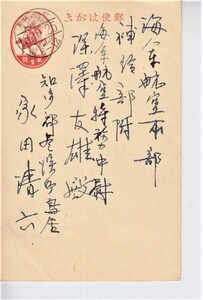 郵便はがき
海軍航空本部
補給部附
海軍航空特務中尉
澤友雄殿
知多郡
永田清六